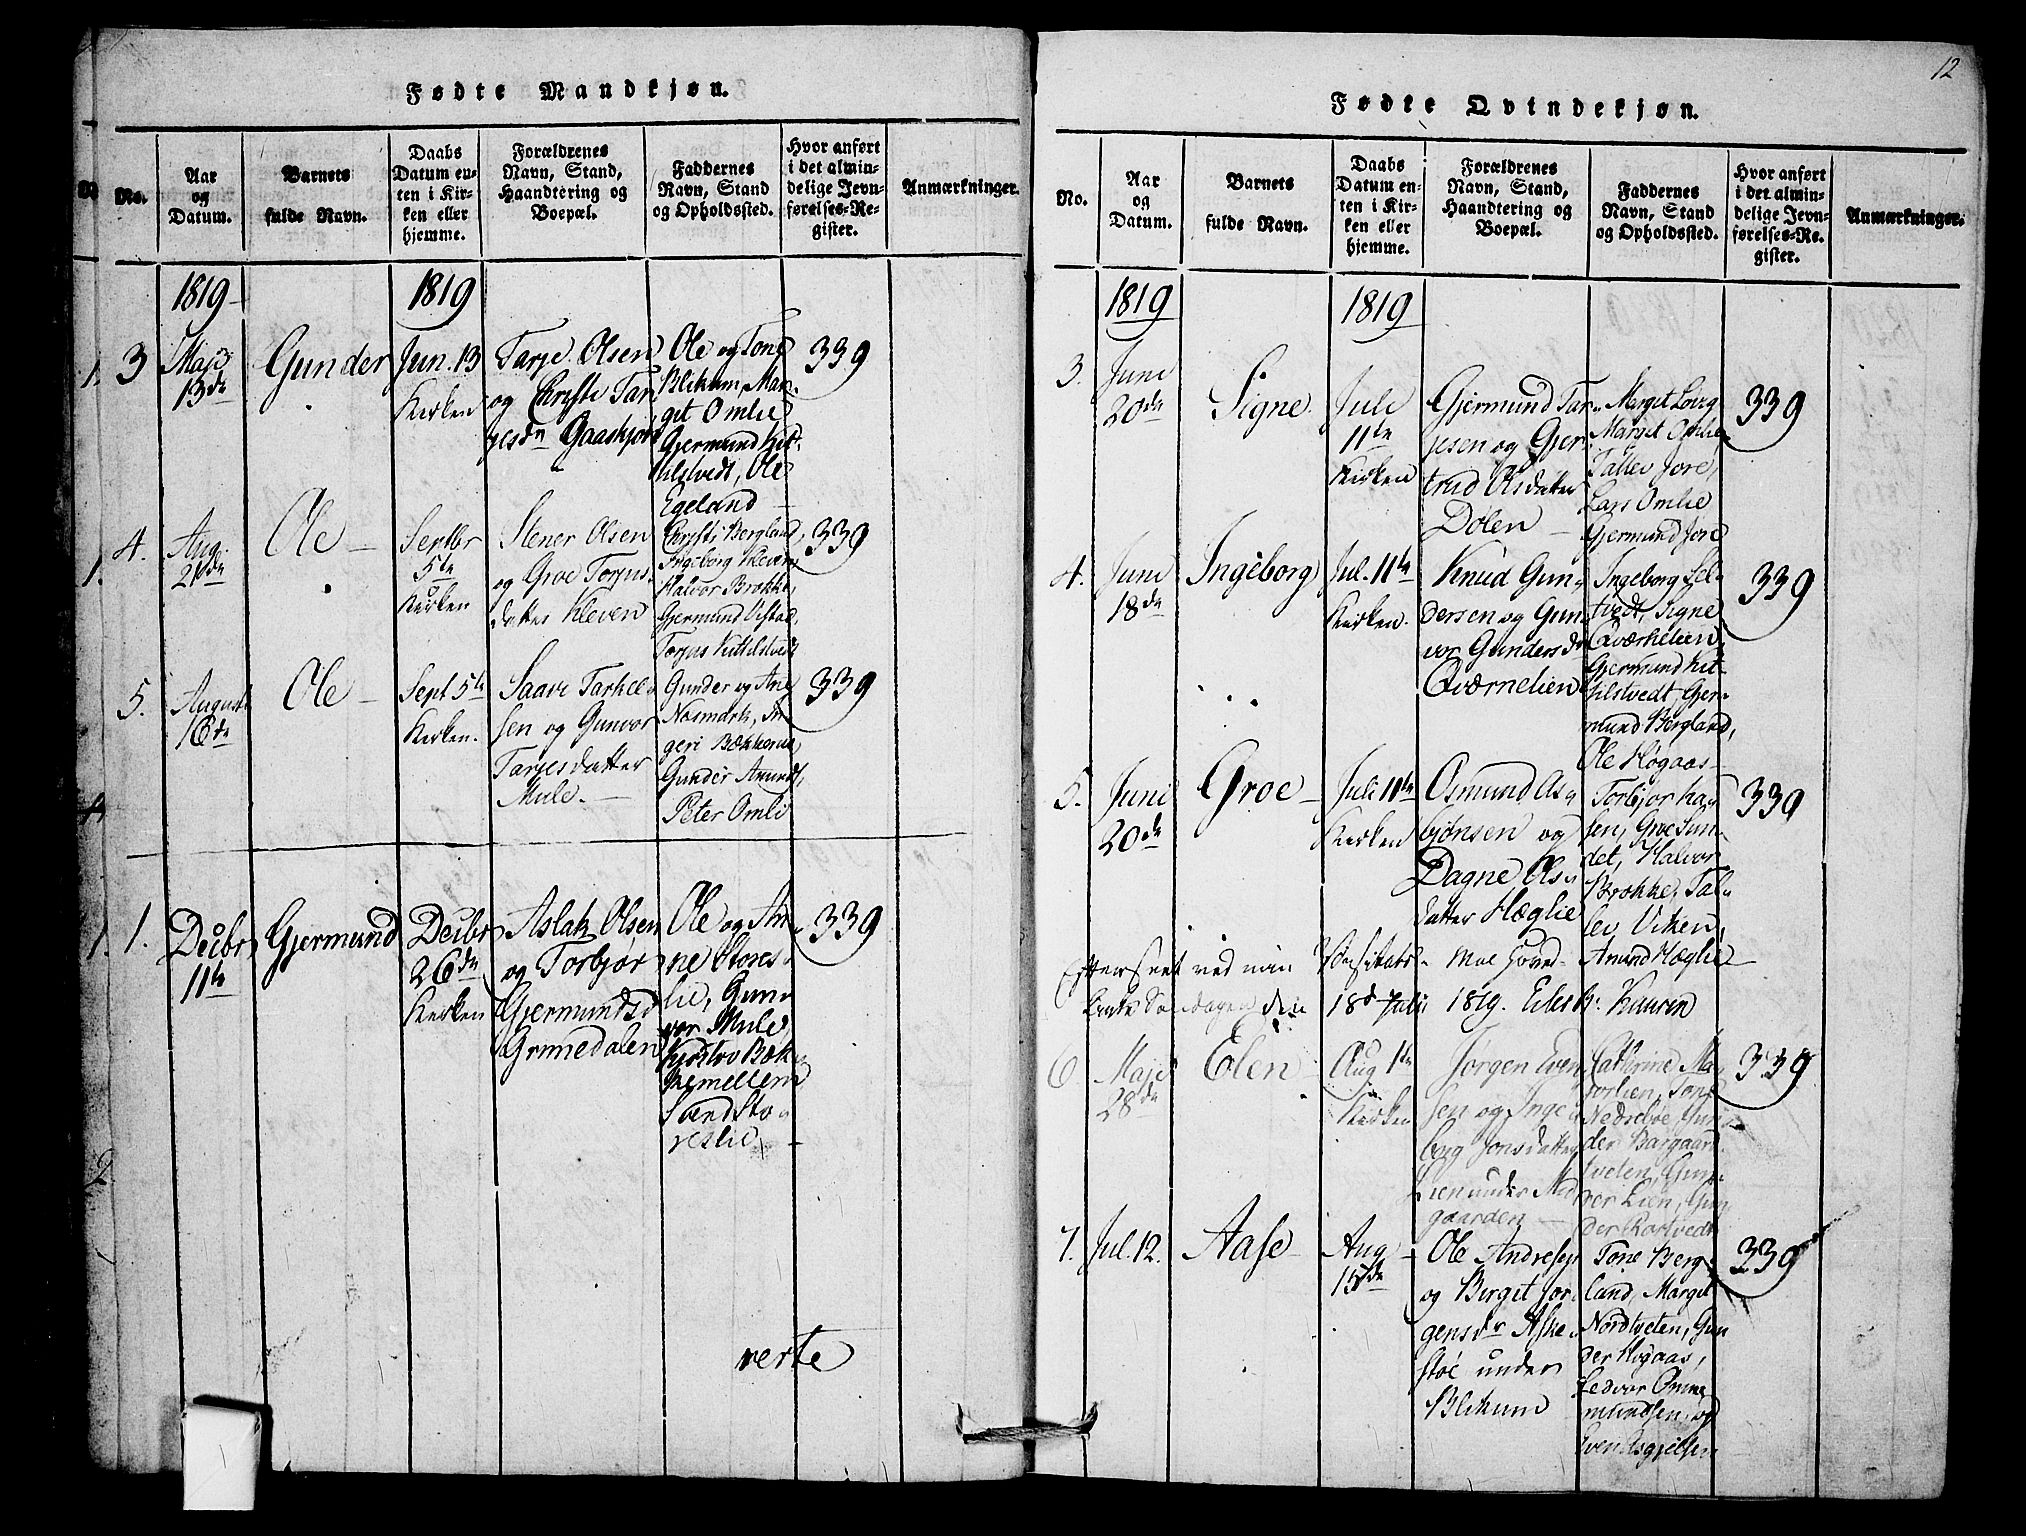 Fødte Mandkjøn.
No.
Aar
og
Datum.
Barnets
fulde Navn.
Daabs
Datum en-
ten i Kir-
ken eller
hjemme.
Forældrenes
Navn, Stand,
Haandtering og
Boepæl.
Faddernes
Navn, Stand
og Opholdssted.
Hvor anført
i det almin-
delige Jevn-
førelses-Re-
gister.
Anmærkninger.
1819
1819
3
Maji
13de
Gunder
Jun. 13
Kirken
Tarje Olsen
og Christi Tar
jesdr Gaaskjør
Ole og Tone
Blikum, Mar-
git Omlie
Gjermund Kit-
tilstvedt, Ole
Egeland
339
4.
Aug.
Ole
Septbr
5te
Kirken
Stener Olsen
og Groe Torjus
datter Kleven
Christi Bergland,
Ingeborg Kleven,
Halvor Brokke,
Gjermund
Torjus Kittilstvedt
339
5.
August
16de
Ole
Sept 5te
Kirken.
Saave Tarkel
sen og Gunvor
Tarjesdatter
Mule.
Gunder og Ane
Nosmark, In
geri
Gunder Amunds,
Peter Omli
339
1.
Decbr
11te
Gjermund
Decbr
26de
Kirken
Aslak Olsen
og Torbjør
Gjermundsd
Grimedalen
Ole og An
ne Stores
lie, Gun
vor Mule
Bæk
Svend Sto
reslie
339
verte
12
Fødte Qvindekjøn.
No.
Aar
og
Datum.
Barnets
fulde Navn.
Daabs
Datum en-
ten i Kir-
ken eller
hjemme.
Forældrenes
Navn, Stand,
Haandtering og
Boepæl.
Faddernes
Navn, Stand
og Opholdssted.
Hvor anført
i det almin-
delige Jevn-
førelses-Re-
gister.
Anmærkninger.
1819
1819
3.
Juni
20de
Signe
Juli
11te
Kirken
Gjermund Tar
jesen og Gjer
trud Olsdatter
Dolen
Marget
Marget Omlie
Tallev Jore,
Lars Omlie
Gjermund Jore
339
4.
Juni
18de
Ingeborg
Jul. 11te
Kirken.
Knud Gun
dersen og Gun
vor Gundersd
Qværnelien
Ingeborg Sel
tvedt, Signe
Qværnelien,
Gjermund Kit-
tilstvedt, Gjer
mund Bergland,
Ole Høgaas
339
5.
Juni
20de
Groe
Juli 11te
Kirken
Osmund As
bjønsen og
Dagne Ols
datter Hæglie
Torbjør Han
sen, Groe Sun
det, Halvor
Brokke, Tal
lev Viken,
Amund Hæglie
339
Efterseet ved min Visitats
Søndagen den 18d Juli 1819.
6
Maji
28de
Elen
Aug 1te
Kirken
Jørgen Even
sen og Inge
borg Jonsdatter
Lien under
gaarden
Cathrine
Tone
Nedrebøe, Gun
der
tveten, Gun
der Lien, Gun
der
339
7.
Jul. 12.
Aase
Aug
15de
Ole Andresen
og Berget Jør
gensdr Aske
støe under
Blikum
Tone Berg
lund, Marget
Nordtveten, Gun
der Høgaas,
mundsen, og
339